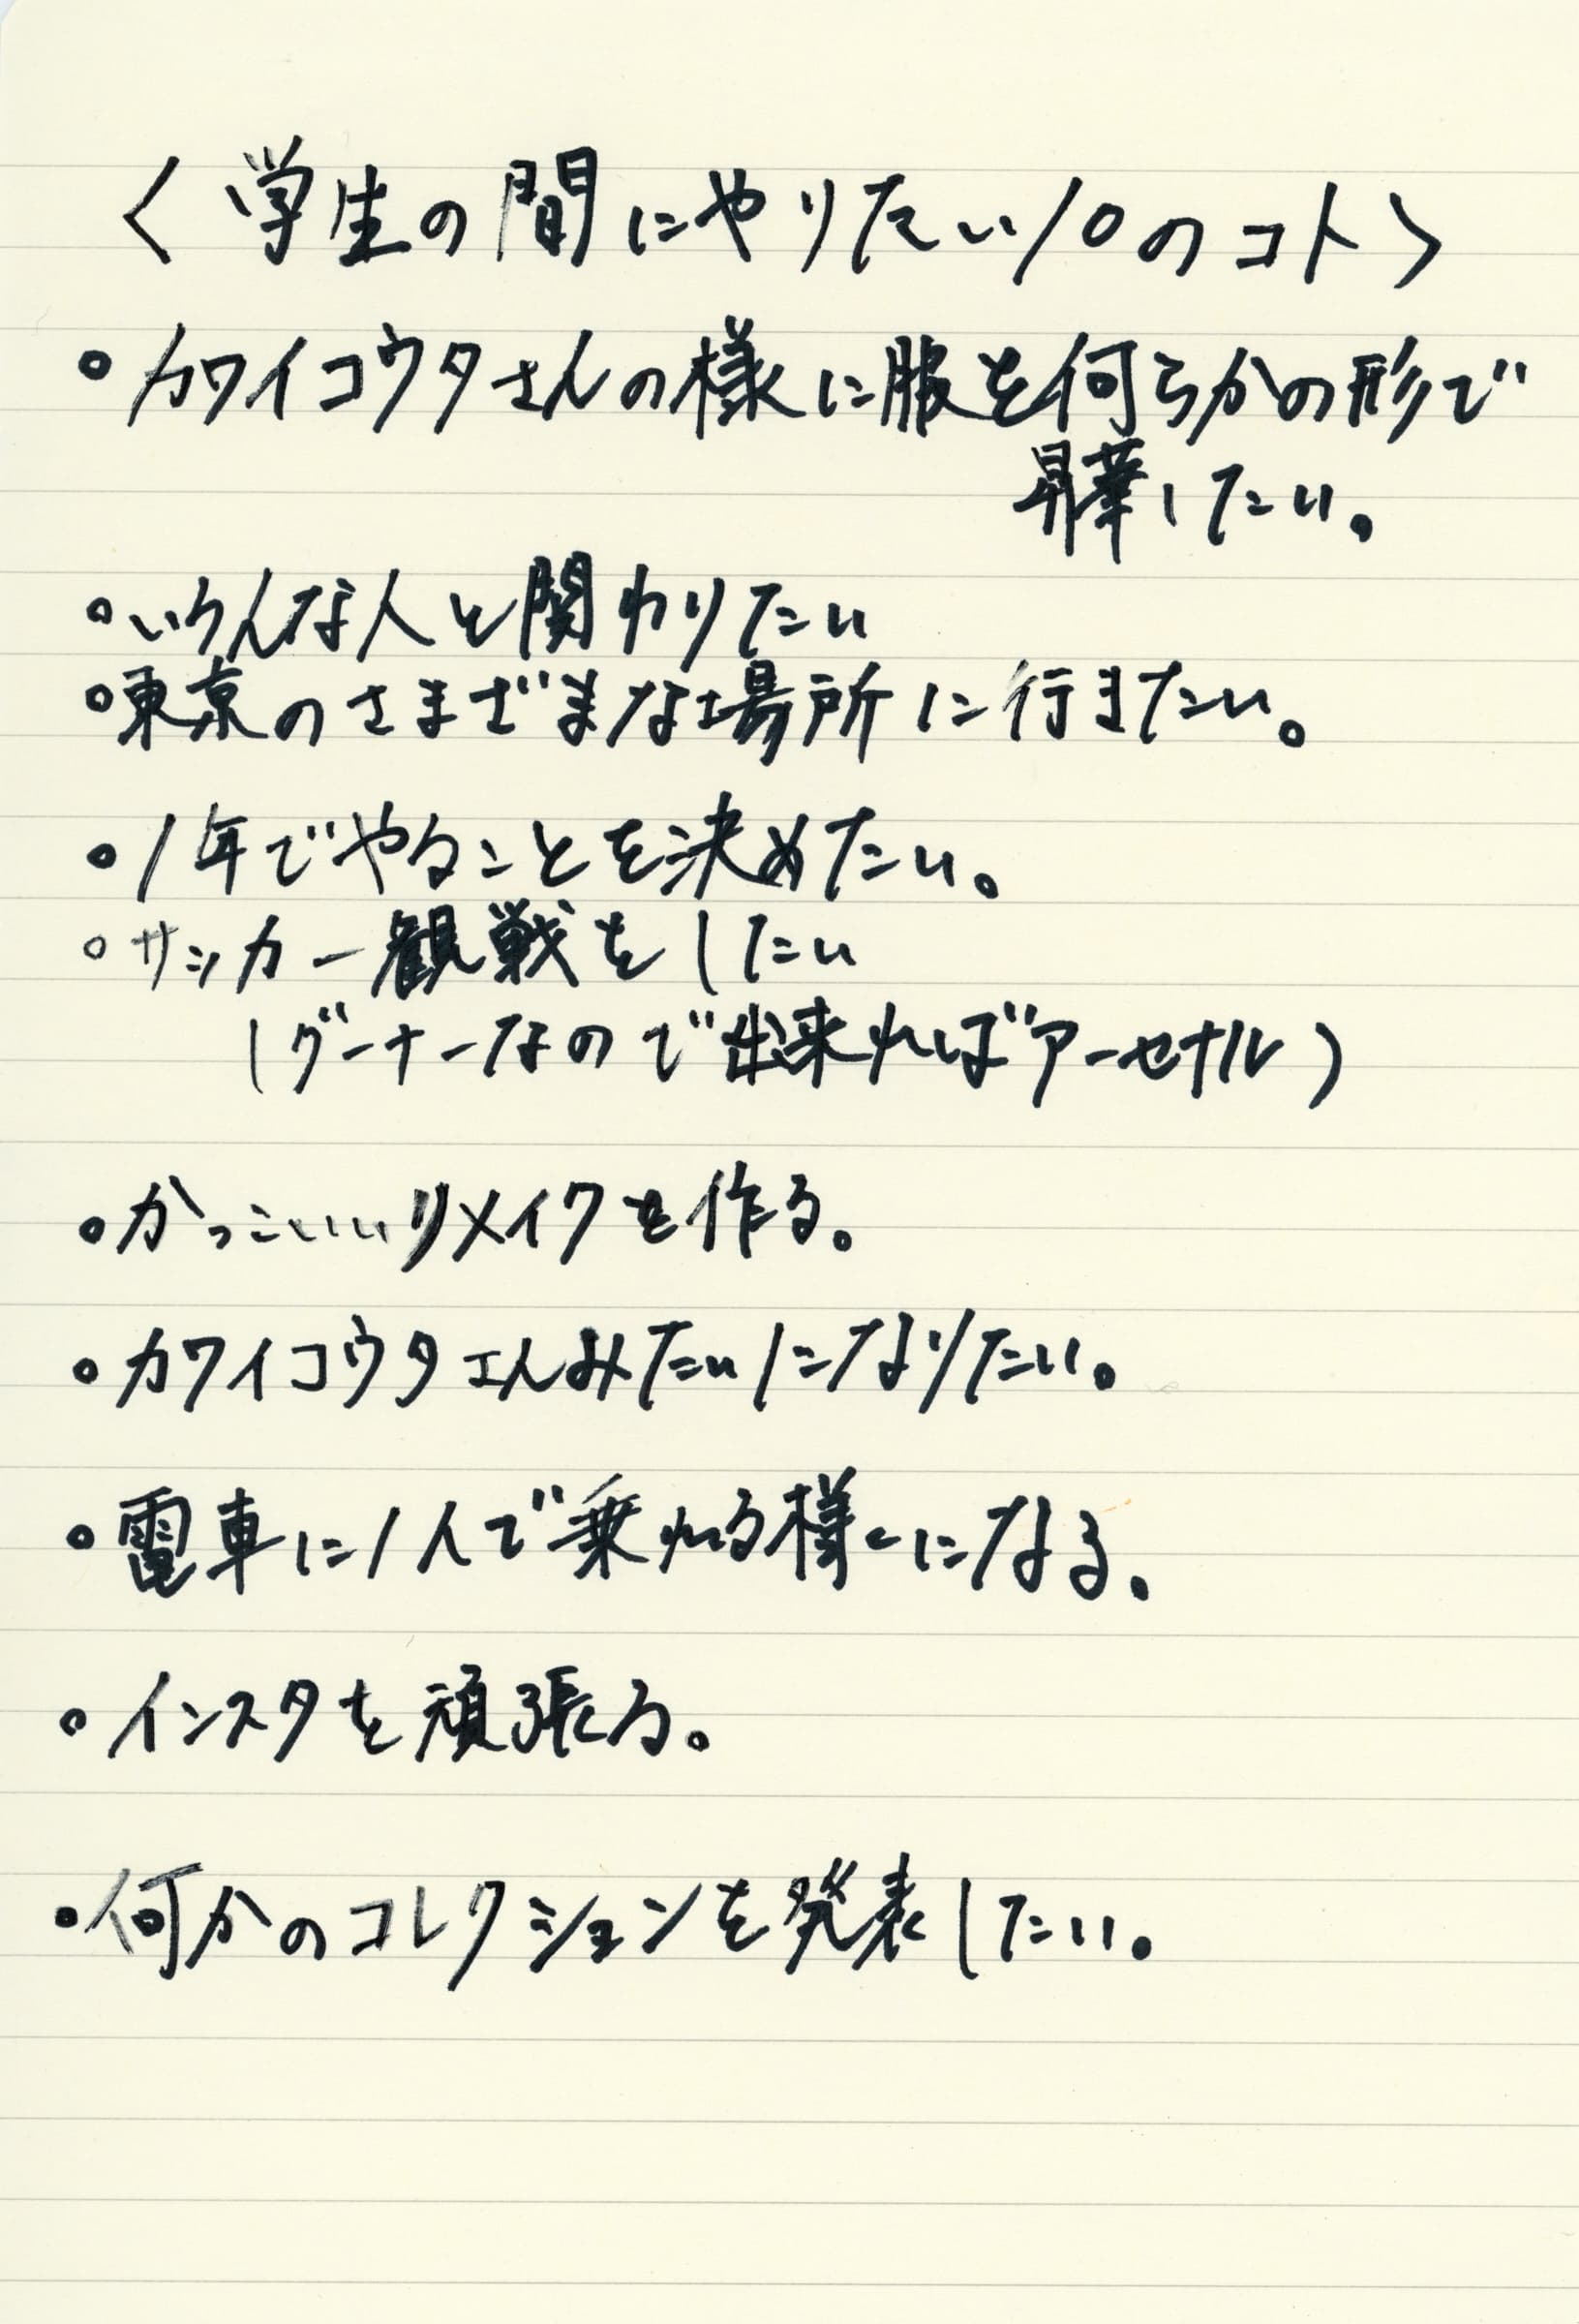 〈学生の間にやりたい10のコト〉
○カワイコウタさんの様に服を何らかの形で
昇華したい。
○いろんな人と関わりたい
○東京のさまざまな場所に行きたい。
○1年でやることを決めたい。
○サッカー観戦をしたい
(グーナーなので出来ればアーセナル)
○かっこいいリメイクを作る。
○カワイコウタさんみたいになりたい。
○電車に1人で乗れる様にになる。
○インスタを頑張る。
○何かのコレクションを発表したい。